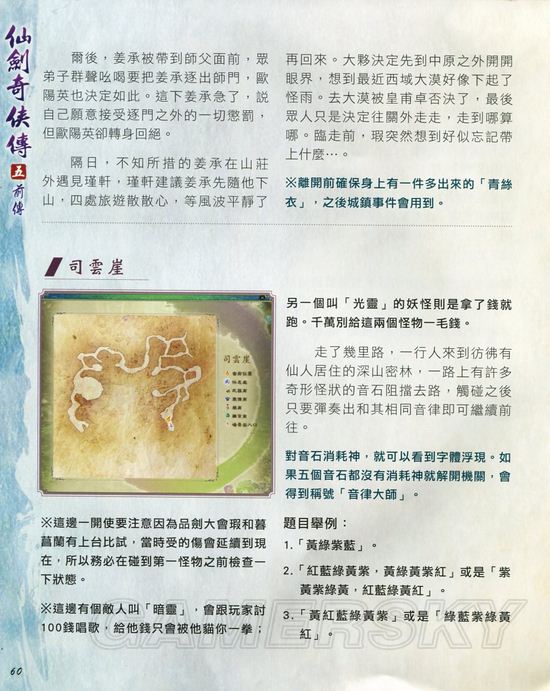 仙劍奇俠傳
五
前傳
爾後，姜承被帶到師父面前，眾
弟子群聲吆喝要把姜承逐出師門，歐
陽英也決定如此。這下姜承急了，説
自己願意接受逐門之外的一切懲罰，
但歐陽英卻轉身回絕。
隔日，不知所措的姜承在山莊
外遇見瑾軒，瑾軒建議姜承先隨他下
山，四處旅遊散散心，等風波平靜了
再回來。大夥決定先到中原之外開開
眼界，想到最近西域大漠好像下起了
怪雨。去大漠被皇甫卓否決了，最後
眾人只是決定往關外走走，走到哪算
哪。臨走前，瑕突然想到好似忘記帶
上什麼…。
※離開前確保身上有一件多出來的「青絲
衣」，之後城鎮事件會用到。
司雲崖
司雲崖
另一個叫「光靈」的妖怪則是拿了錢就
跑。千萬別給這兩個怪物一毛錢。
走了幾里路，一行人來到彷彿有
仙人居住的深山密林，一路上有許多
奇形怪狀的音石阻擋去路，觸碰之後
只要彈奏出和其相同音律即可繼續前
往。
對音石消耗神，就可以看到字體浮現。如
果五個音石都沒有消耗神就解開機關，會
得到稱號「音律大師」。
※這邊一開使要注意因為品劍大會瑕和暮
菖蘭有上台比試，當時受的傷會延續到現
在，所以務必在碰到第一怪物之前檢查一
下狀態。
※這邊有個敵人叫「暗靈」，會跟玩家討
100錢唱歌，給他錢只會被他貓你一拳；
題目舉例：
1.「黃綠紫藍」。
2.「紅藍綠黃紫，黃綠黃紫紅」或是「紫
黃紫綠黃，紅藍綠黃紅」。
3.「黃紅藍綠黃紫」或是「綠藍紫綠黃
紅」。
GAMERSKY
60